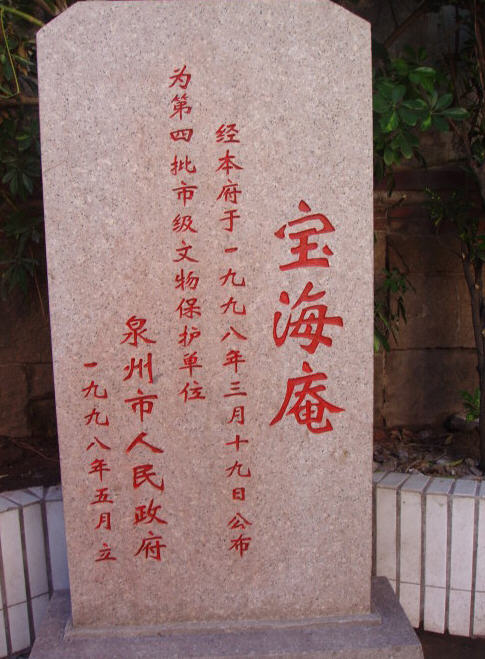 宝海庵
经本府于一九九八年三月十九日公布
为第四批市级文物保护单位
泉州市人民政府
一九九八年五月立